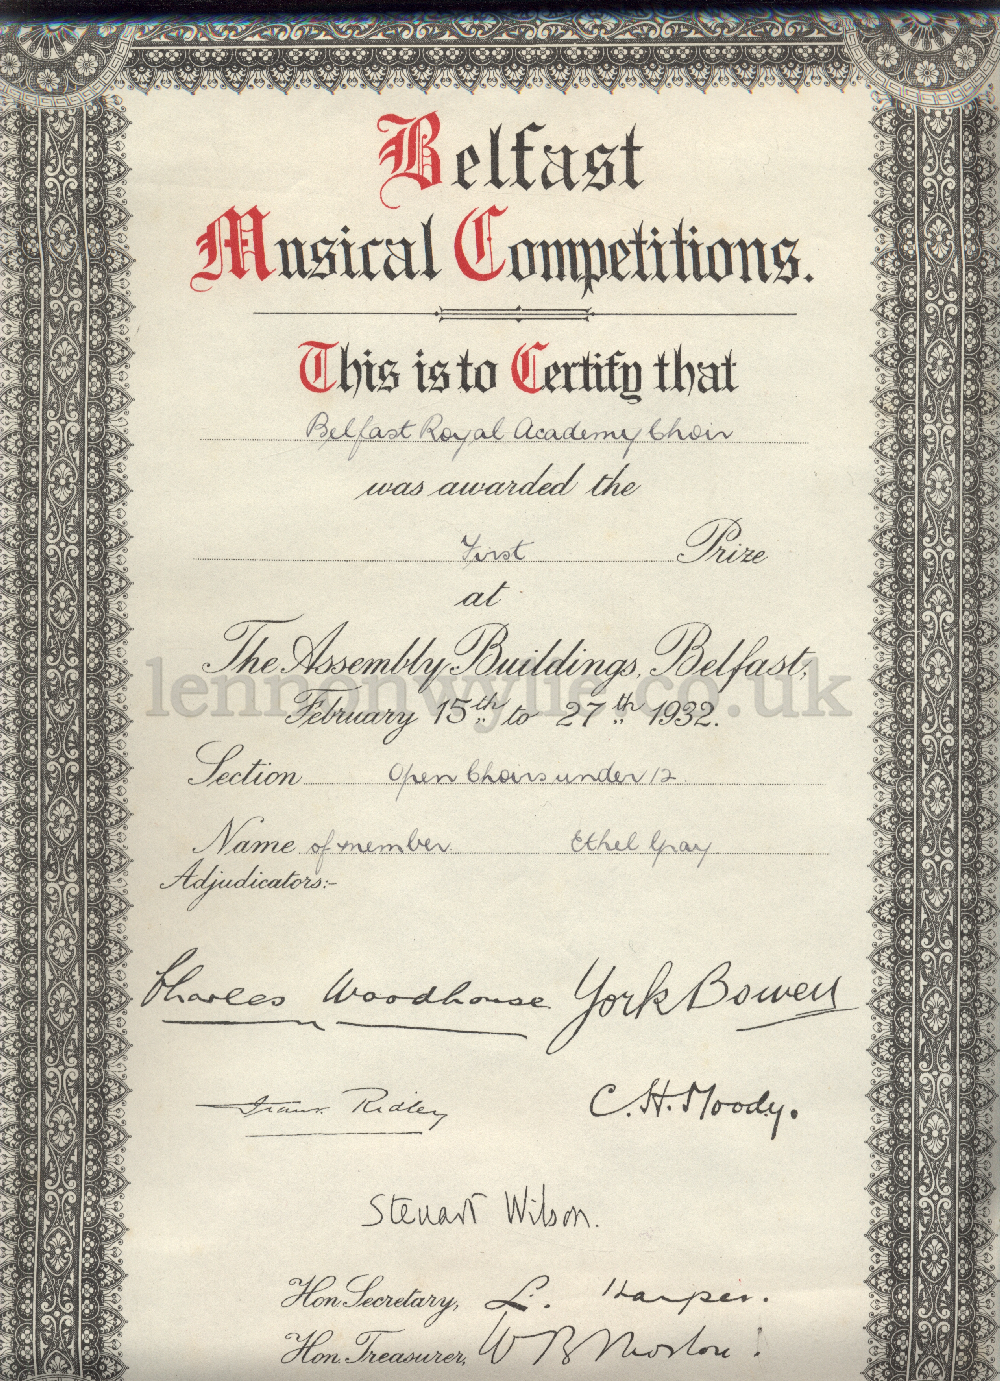 Belfast
Musical Competitions.
This is to Certify that
Belfast Royal Academy Choir
was awarded the
First Prize
at
The Assembly Buildings, Belfast,
lennonwylie.co.uk
February 15th to 27th 1932.
Section Open Choirs under 12
Name of member Ethel Gray
Adjudicators:-
Charles Woodhouse York Bowen
Ridley C. H. Moody.
Steuart Wilson.
Hon Secretary, L. Harper.
Hon Treasurer, W B Morton